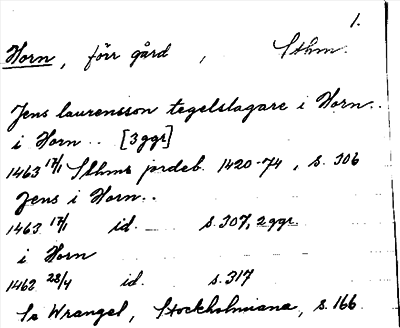 1.
Horn, förr gård, Sthm.
Jens laurensson tegelslagare i Horn..
i Horn.. [3 ggr]
1463 17/1 Sthms jordeb. 1420-74, s. 306
Jens i Horn..
1463 17/1 id. s. 307, 2 ggr.
i Horn
1462 28/4 id. s. 317
Se Wrangel, Stockholmiana, s. 166.